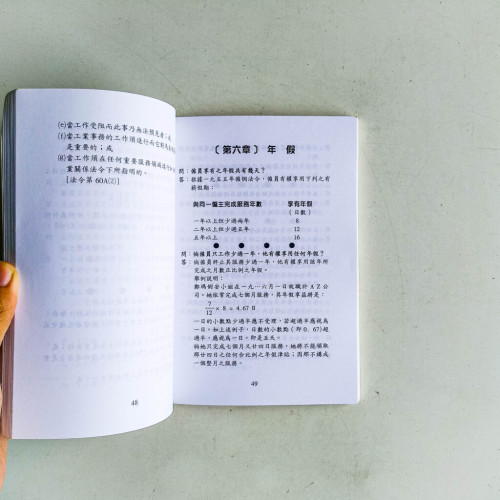 (e)當工作受阻而此事乃無法預見者;或
(f)當業事務的工作須進行而它對
是重要的;或
(g)當工作須在任何重要服務
業關係法令下所指明的。
[法令第 60A(2)]
48
〔第六章〕年 假
問:僱員享有之年假共有幾天?
答:根據一九五五年僱傭法令,僱員有權享用下列之有
薪假期:
與同一僱主完成服務年數 享有年假
(日數)
一年以上但少過兩年 8
二年以上但少過五年 12
五年以上 16
問:倘僱員只工作少過一年,他有權享用任何年假?
答:倘僱員終止其服務少過一年,他有權享用該年所
完成之月數正比例之年假。
舉例說明:
鄭瑪莉女小姐在一九一六月一日就職於AZ公
司。她很常完成七個月服務,其年假享益將是:
7/12 × 8 = 4.67 日
一日的小數點少過半應不受理,若超過半應視為
一日。如上述例子,日數的小數點(即 0.67)超
過半,應視為一日,即是五天。
倘她只完成七個月又廿四日服務,她將不能領取
那廿四日之任何合比例之年假津貼;因那不構成
一個整月之服務。
49